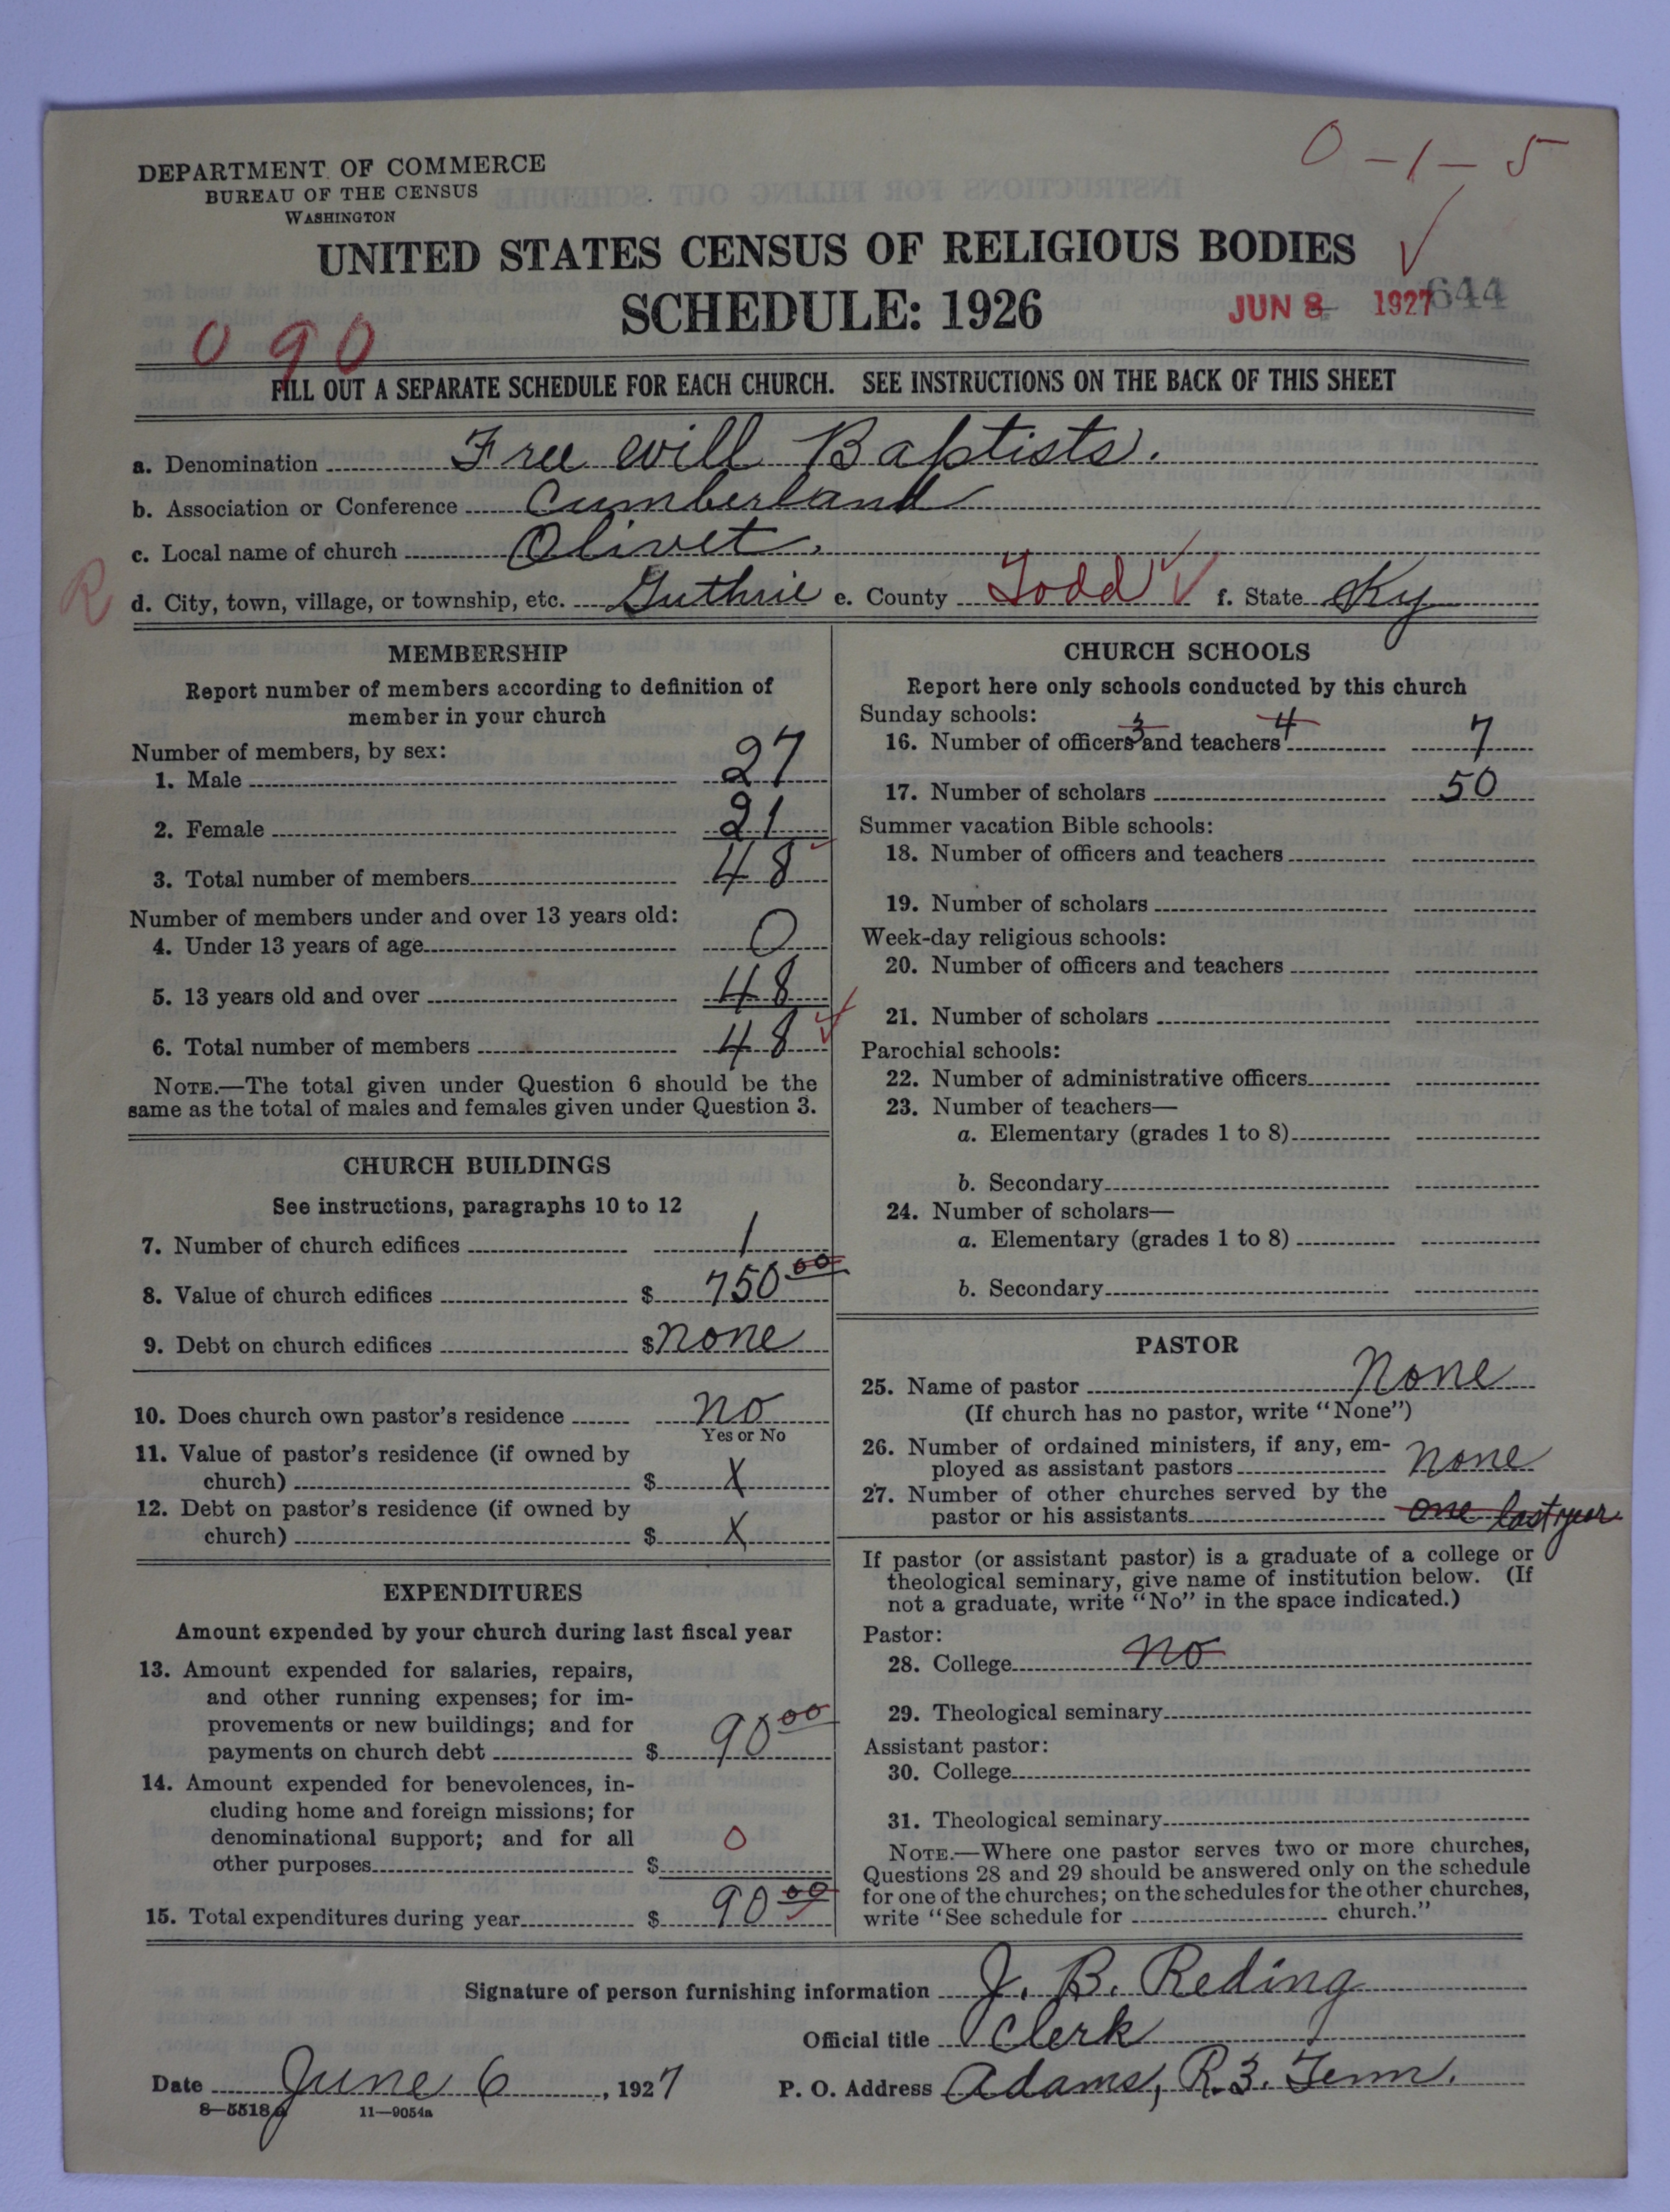 0 - 1 - 5
DEPARTMENT OF COMMERCE
BUREAU OF THE CENSUS
WASHINGTON
UNITED STATES CENSUS OF RELIGIOUS BODIES
SCHEDULE: 1926
JUN 8 1927
644
0 9 0
FILL OUT A SEPARATE SCHEDULE FOR EACH CHURCH. SEE INSTRUCTIONS ON THE BACK OF THIS SHEET
a. Denomination Free will Baptists.
b. Association or Conference Cumberland
c. Local name of church Olivet.
R
d. City, town, village, or township, etc. Guthrie e. County Todd f. State Ky
MEMBERSHIP
Report number of members according to definition of
member in your church
Number of members, by sex:
1. Male 27
2. Female 21
3. Total number of members 48
Number of members under and over 13 years old:
4. Under 13 years of age 0
5. 13 years old and over 48
6. Total number of members 48
NOTE.—The total given under Question 6 should be the
same as the total of males and females given under Question 3.
CHURCH BUILDINGS
See instructions, paragraphs 10 to 12
7. Number of church edifices 1
8. Value of church edifices $ 750 00
9. Debt on church edifices $ none
10. Does church own pastor's residence no
Yes or No
11. Value of pastor's residence (if owned by
church) $ X
12. Debt on pastor's residence (if owned by
church) $ X
EXPENDITURES
Amount expended by your church during last fiscal year
13. Amount expended for salaries, repairs,
and other running expenses; for im-
provements or new buildings; and for
payments on church debt $ 90 00
14. Amount expended for benevolences, in-
cluding home and foreign missions; for
denominational support; and for all
other purposes $ 0
15. Total expenditures during year $ 90 00
CHURCH SCHOOLS
Report here only schools conducted by this church
Sunday schools:
3 4
16. Number of officers and teachers 7
17. Number of scholars 50
Summer vacation Bible schools:
18. Number of officers and teachers
19. Number of scholars
Week-day religious schools:
20. Number of officers and teachers
21. Number of scholars
Parochial schools:
22. Number of administrative officers
23. Number of teachers—
a. Elementary (grades 1 to 8)
b. Secondary
24. Number of scholars—
a. Elementary (grades 1 to 8)
b. Secondary
PASTOR
25. Name of pastor None
(If church has no pastor, write "None")
26. Number of ordained ministers, if any, em-
ployed as assistant pastors none
27. Number of other churches served by the
pastor or his assistants one last year
If pastor (or assistant pastor) is a graduate of a college or
theological seminary, give name of institution below. (If
not a graduate, write "No" in the space indicated.)
Pastor:
28. College no
29. Theological seminary
Assistant pastor:
30. College
31. Theological seminary
NOTE.—Where one pastor serves two or more churches,
Questions 28 and 29 should be answered only on the schedule
for one of the churches; on the schedules for the other churches,
write "See schedule for church."
Signature of person furnishing information J. B. Reding
Official title Clerk
Date June 6, 1927 P. O. Address Adams, R.3. Tenn.
8—5518a 11—9054a